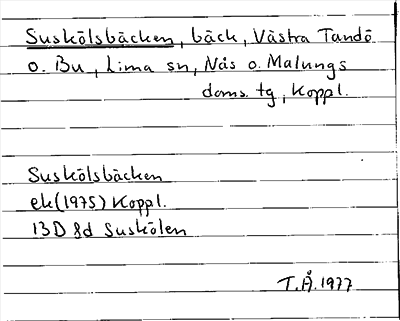 Suskölsbäcken, bäck, Västra Tandö
o. Bu, Lima sn, Nås o. Malungs
doms. tg, Koppl.
Suskölsbäcken
ek(1975) Koppl.
13D 8d Suskölen
T.Å.1977